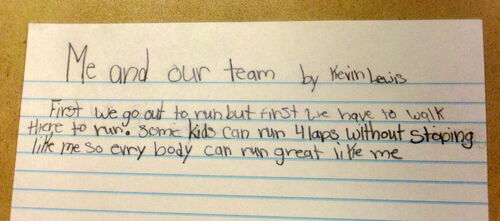 Me and our team by Kevin Lewis
First we go out to run but first we have to walk
there to run. some kids can run 4 laps without stoping
like me so evry body can run great like me